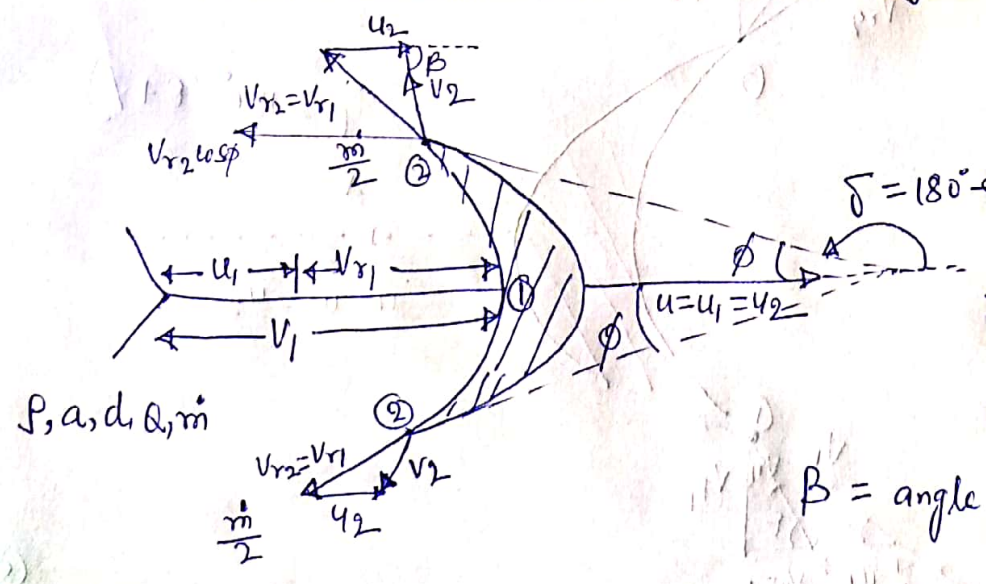 u2
β
V2
Vr2=Vr1
Vr2 cosφ
ṁ/2
②
δ = 180°-
φ
u1
Vr1
①
u=u1=u2
V1
φ
ρ, a, d, Q, ṁ
②
Vr2=Vr1
V2
u2
ṁ/2
β = angle